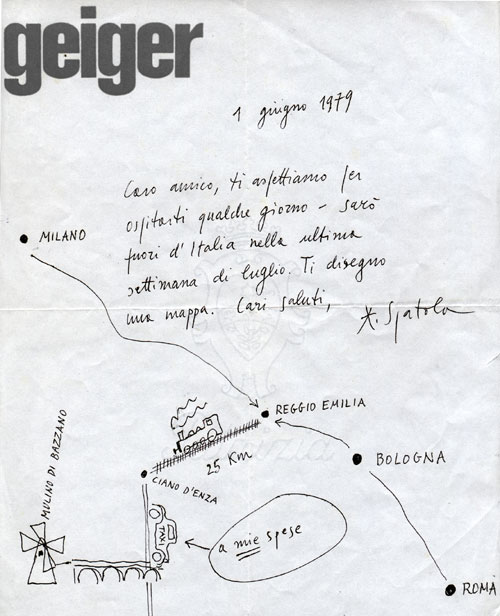 geiger
1 giugno 1979
Caro amico, ti aspettiamo per
ospitarti qualche giorno – sarò
fuori d'Italia nella ultima
settimana di luglio. Ti disegno
una mappa. Cari saluti,
A. Spatola
MILANO
REGGIO EMILIA
25 Km
BOLOGNA
CIANO D'ENZA
MULINO DI BAZZANO
TAXI
a mie spese
ROMA